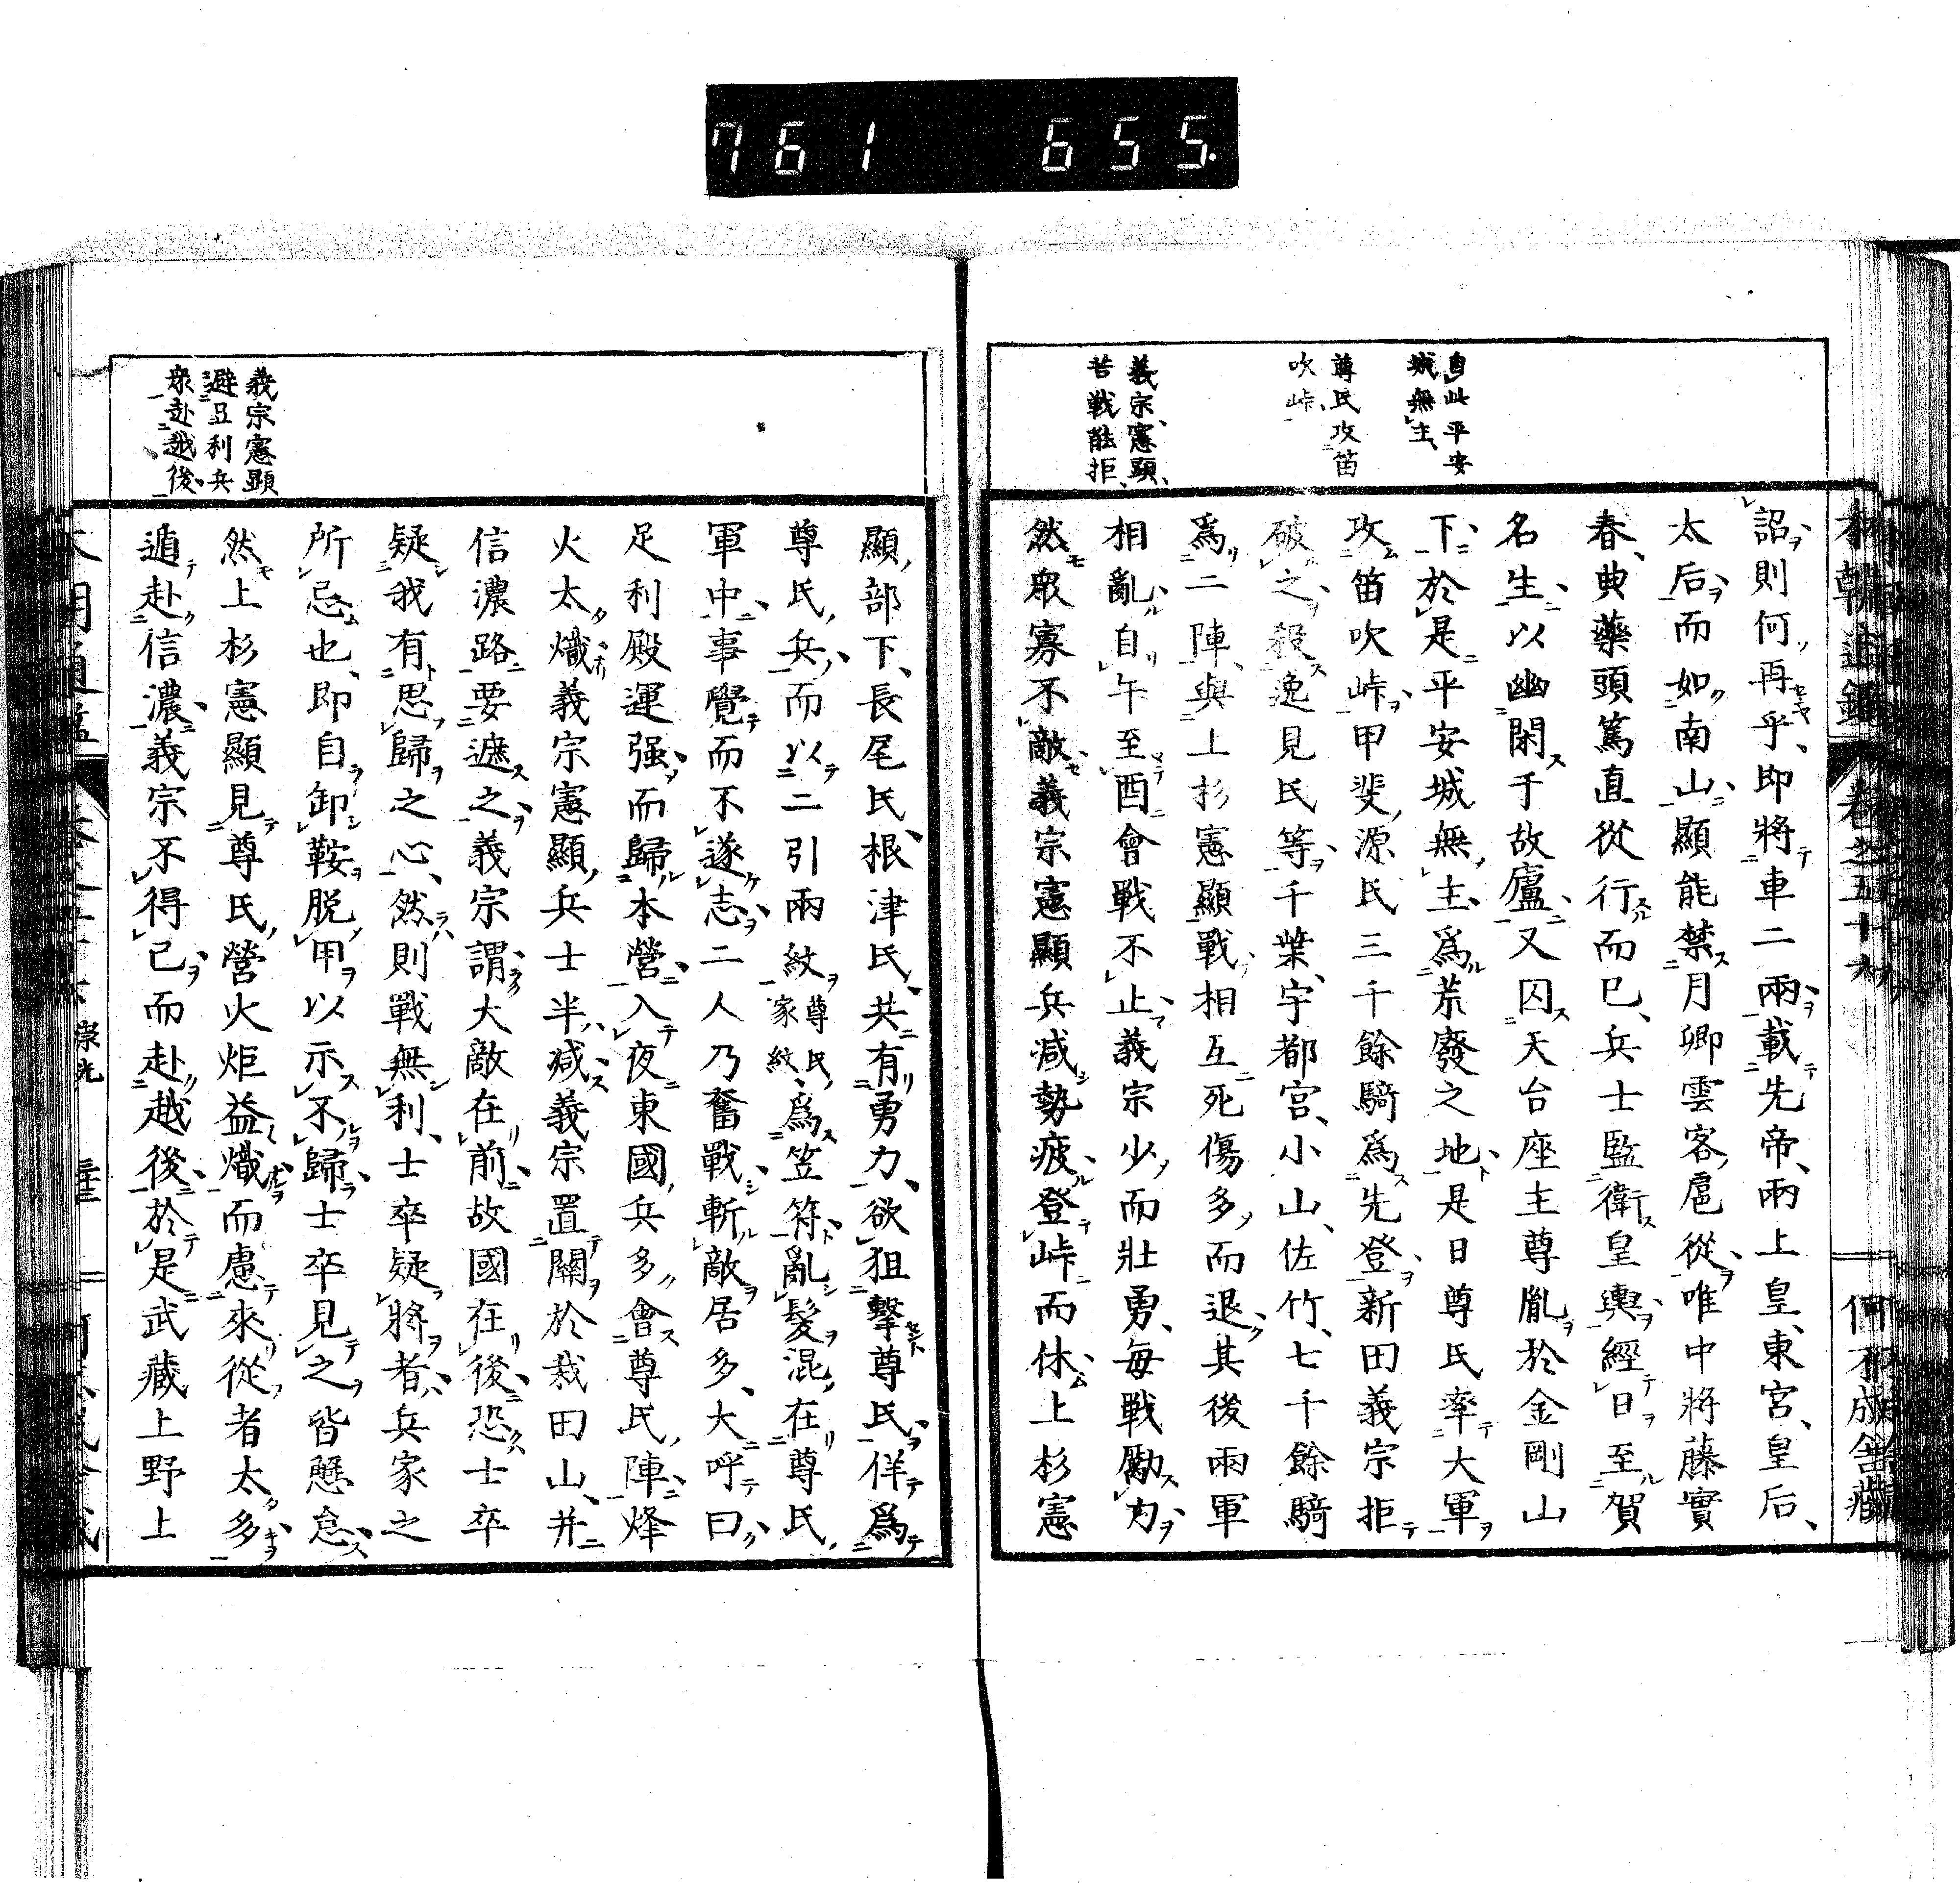 761 655.
自此平安
城無主
尊氏攻笛
吹峠
義宗、憲顯、
苦戰能拒、
詔則何再乎、即將車二兩載先帝、兩上皇、東宮、皇后、
太后而如南山、顯能禁月卿雲客扈從、唯中將藤實
春、典藥頭篤直從行而已、兵士監衛皇輿、經日至賀
名生、以幽閑于故廬、又囚天台座主尊胤於金剛山
下、於是平安城無主、為荒廢之地、是日尊氏率大軍
攻笛吹峠、甲斐源氏三千餘騎為先登、新田義宗拒
破之、殺逸見氏等、千葉、宇都宮、小山、佐竹、七千餘騎
為二陣、與上杉憲顯戰、相互死傷多而退、其後兩軍
相亂、自午至酉會戰不止、義宗少而壯勇、每戰勵力、
然眾寡不敵、義宗憲顯兵減勢疲、登峠而休、上杉憲
顯部下、長尾氏、根津氏、共有勇力、欲狙擊尊氏、佯為
尊氏兵、而以二引兩紋尊氏家紋、為笠符、亂髮混在尊氏
軍中、事覺而不遂志、二人乃奮戰、斬敵居多、大呼曰、
足利殿運强、而歸本營、入夜東國兵多會尊氏陣、烽
火太熾、義宗憲顯兵士半減、義宗置關於栽田山、并
信濃路、要遮之、義宗謂大敵在前、故國在後、恐士卒
疑我有思歸之心、然則戰無利、士卒疑將者、兵家之
所忌也、即自卸鞍脫甲以示不歸、士卒見之皆懸怠、
然上杉憲顯見尊氏營火炬益熾、而慮來從者太多
遁赴信濃、義宗不得已而赴越後、於是武藏上野上
義宗憲顯
避足利兵
衆赴越後
本朝通鑑 卷之五十六
崇光